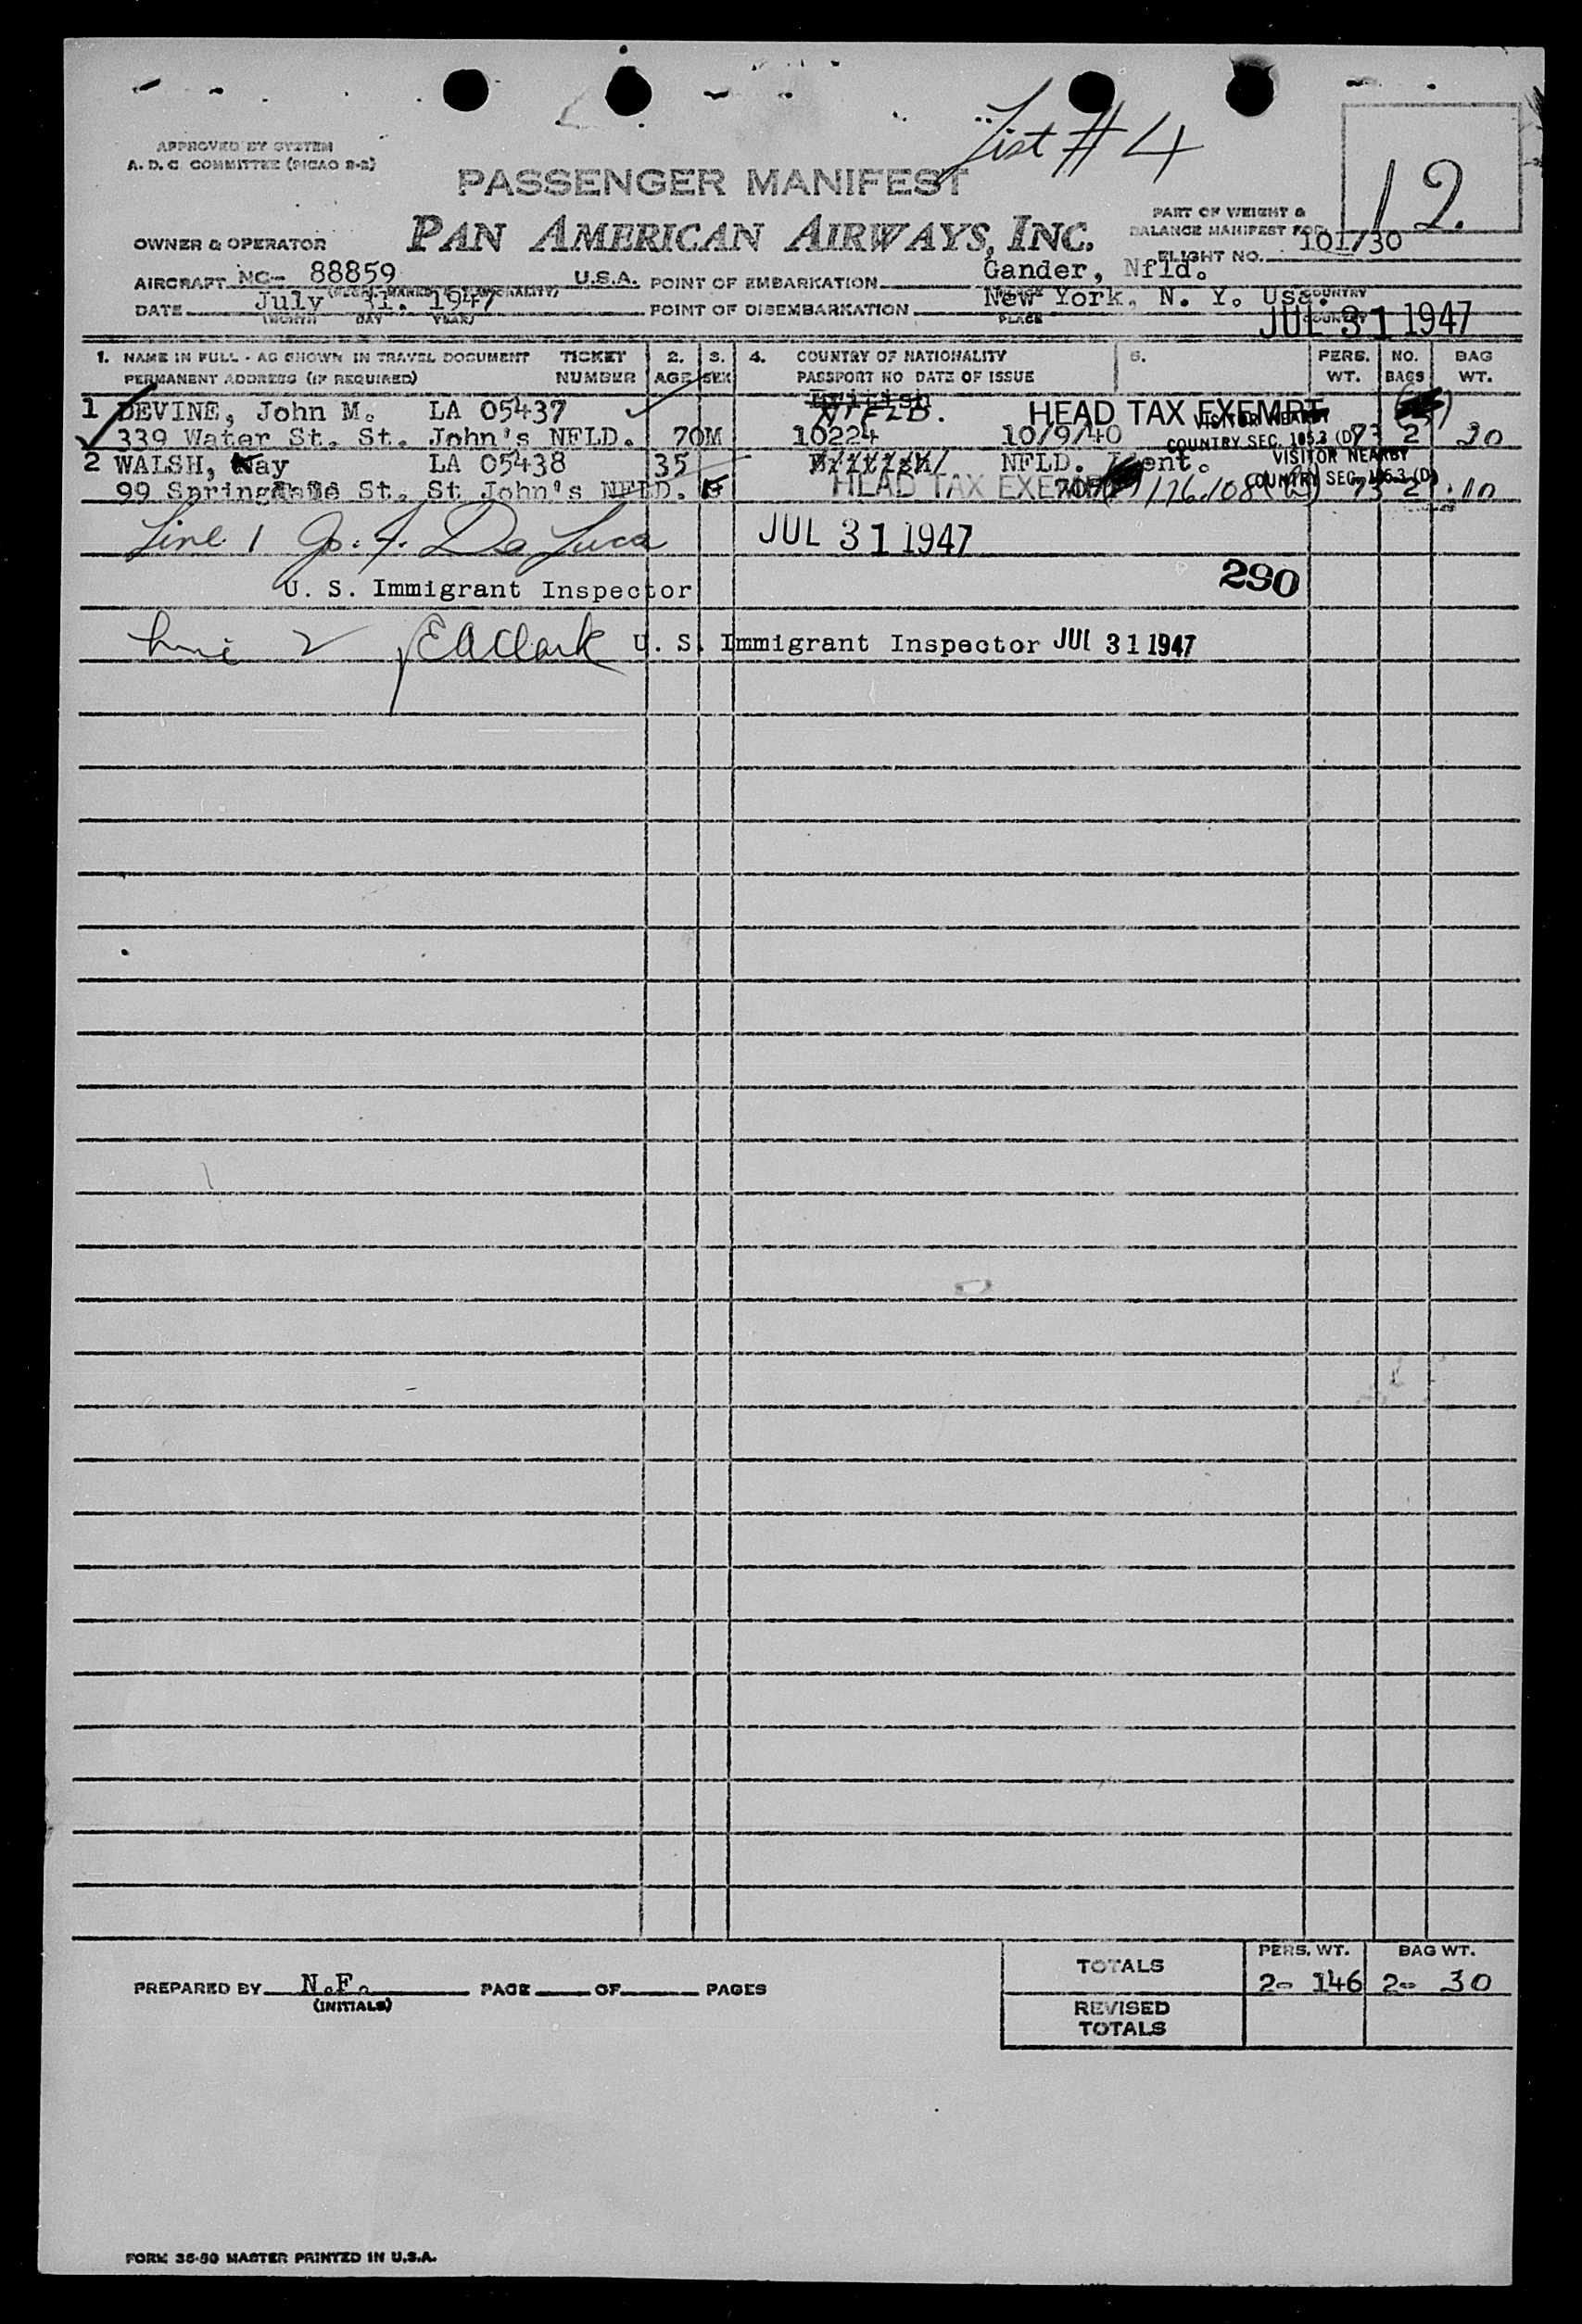 List # 4
APPROVED BY SYSTEM
A. D. C. COMMITTEE (PICAO 9-2)
12.
PASSENGER MANIFEST
PAN AMERICAN AIRWAYS, INC.
PART OF WEIGHT &
BALANCE MANIFEST FOR
FLIGHT NO. 101/30
OWNER & OPERATOR
AIRCRAFT NC- 88859 U.S.A. POINT OF EMBARKATION Gander, Nfld.
DATE July 31. 1947 POINT OF DISEMBARKATION New York. N. Y. Usa.
(MONTH DAY YEAR) PLACE COUNTRY
JUL 31 1947
1. NAME IN FULL - AS SHOWN IN TRAVEL DOCUMENT TICKET 2. 3. 4. COUNTRY OF NATIONALITY 5. PERS. NO. BAG
PERMANENT ADDRESS (IF REQUIRED) NUMBER AGE SEX PASSPORT NO DATE OF ISSUE WT. BAGS WT.
British
1 DEVINE, John M. LA 05437 NFLD. HEAD TAX EXEMPT VISITOR NEARBY
339 Water St. St. John's NFLD. 70 M 10224 10/9/40 COUNTRY SEC. (D) 73 2 20
2 WALSH, Kay LA 05438 35 NFLD. VISITOR NEARBY
99 St. St John's NFLD. HEAD TAX COUNTRY SEC. (D) 73 2 10
Line 1 Jo. F. De Luca JUL 31 1947
U. S. Immigrant Inspector 290
Line 2 EAClark U. S. Immigrant Inspector JUL 31 1947
PERS. WT. BAG WT.
TOTALS 2- 146 2- 30
PREPARED BY N.F. PAGE OF PAGES
(INITIALS)
REVISED
TOTALS
FORM 35-50 MASTER PRINTED IN U.S.A.